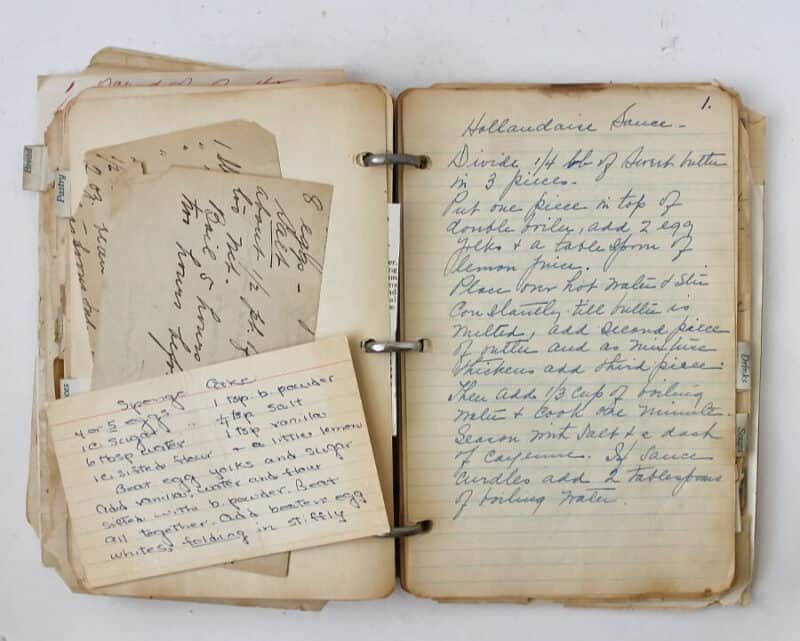 Bread
Pastry
8 eggs -
Salt
about 1/2
Boil 5 hours
two hours
Sponge Cake
4 or 5 eggs 1 tsp b. powder
1 c. sugar 1/4 tsp salt
6 tbsp water 1 tsp vanilla
1 c. sifted flour + a little lemon
Beat egg yolks and sugar
add vanilla, water and flour
sifted with b. powder. Beat
all together. Add beaten egg
whites, folding in stiffly
1.
Hollandaise Sauce -
Divide 1/4 lb of Sweet butter
in 3 pieces.
Put one piece in top of
double boiler, add 2 egg
yolks & a tablespoon of
lemon juice.
Place over hot water & Stir
Constantly till butter is
melted, add second piece
of butter and as mixture
thickens add third piece.
Then add 1/3 cup of boiling
water & Cook one Minute.
Season with Salt & a dash
of Cayenne. If Sauce
Curdles add 2 tablespoons
of boiling water.
Drinks